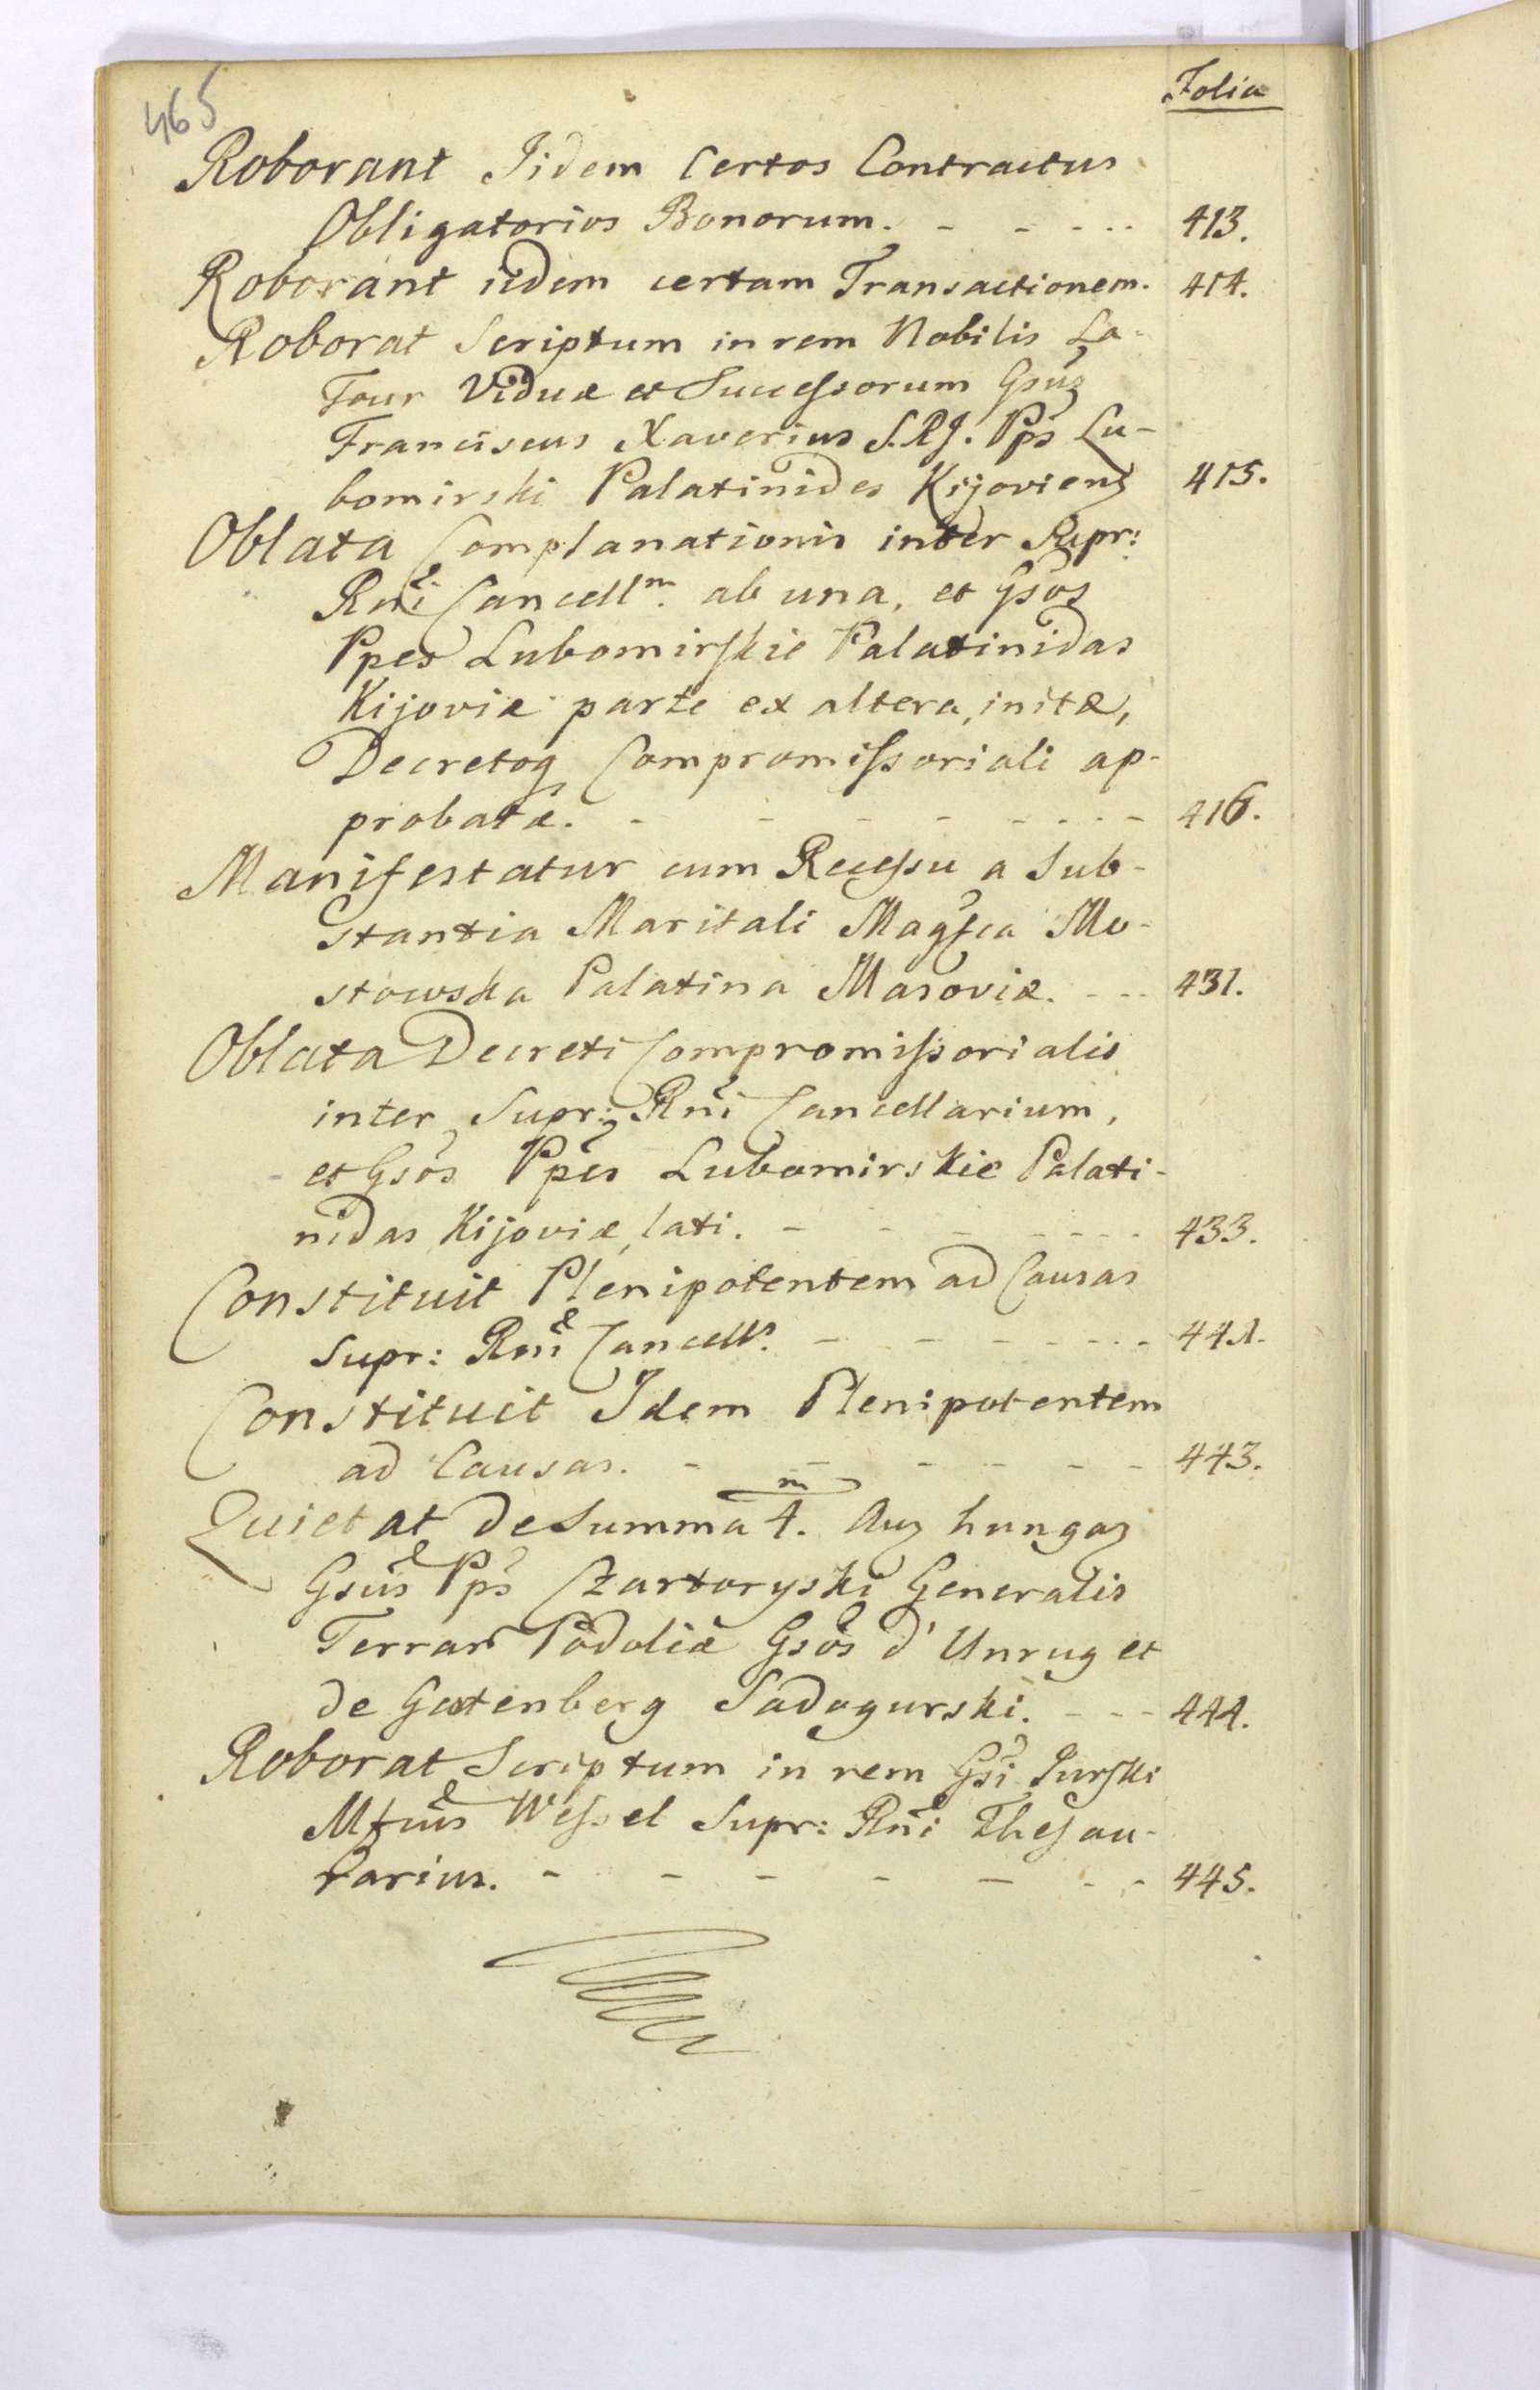 465
Folia
Roborant Iidem Certos Contractus
Obligatorios Bonorum. - - - - - 413.
Roborant iidem certam Transactionem. 414.
Roborat Scriptum in rem Nobilis La-
Tour Viduæ et Successorum Gsus
Franciscus Xaverius S.R.J. Pps Lu-
bomirski Palatinides Kijoviens 415.
Oblata Complanationis inter Supr:
Rni Cancellm. ab una, et Gsos
Ppes Lubomirskie Palatinidas
Kijoviæ parte ex altera, initæ,
Decretoq Compromissoriali ap-
probatæ. - - - - - - - - 416.
Manifestatur cum Recessu a Sub-
stantia Maritali Magfca Mo-
stowska Palatina Masoviæ. - - - 431.
Oblata Decreti Compromissorialis
inter Supr: Rni Cancellarium,
et Gsos Ppes Lubomirskie Palati-
nidas Kijoviæ, lati. - - - - - - - 433.
Constituit Plenipotentem ad Causas
Supr: Rni Cancells. - - - - - - 441.
Constituit Idem Plenipotentem
ad Causas. - - - - - - 443.
m
Quietat de Summa 4. Auz hungaz
Gsus Pps Czartoryski Generalis
Terrar Podoliæ Gsos d'Unrug et
de Gartenberg Sadogurski. - - - 444.
Roborat Scriptum in rem Gsi Turski
Mfcus Wessel Supr: Rni Thesau-
rarius. - - - - - - - 445.